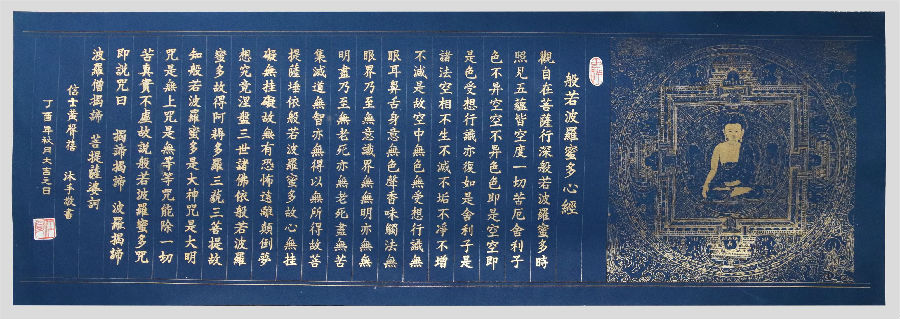 般若波羅蜜多心經
觀自在菩薩行深般若波羅蜜多時
照見五蘊皆空度一切苦厄舍利子
色不異空空不異色色即是空空即
是色受想行識亦復如是舍利子是
諸法空相不生不滅不垢不凈不增
不減是故空中無色無受想行識無
眼耳鼻舌身意無色聲香味觸法無
眼界乃至無意識界無無明亦無無
明盡乃至無老死亦無老死盡無苦
集滅道無智亦無得以無所得故菩
提薩埵依般若波羅蜜多故心無挂
礙無挂礙故無有恐怖遠離顛倒夢
想究竟涅盤三世諸佛依般若波羅
蜜多故得阿耨多羅三藐三菩提故
知般若波羅蜜多是大神咒是大明
咒是無上咒是無等等咒能除一切
苦真實不虛故說般若波羅蜜多咒
即說咒曰 揭諦揭諦 波羅揭諦
波羅僧揭諦 菩提薩婆訶
信士黃 沐手敬書
丁酉年秋月大吉日